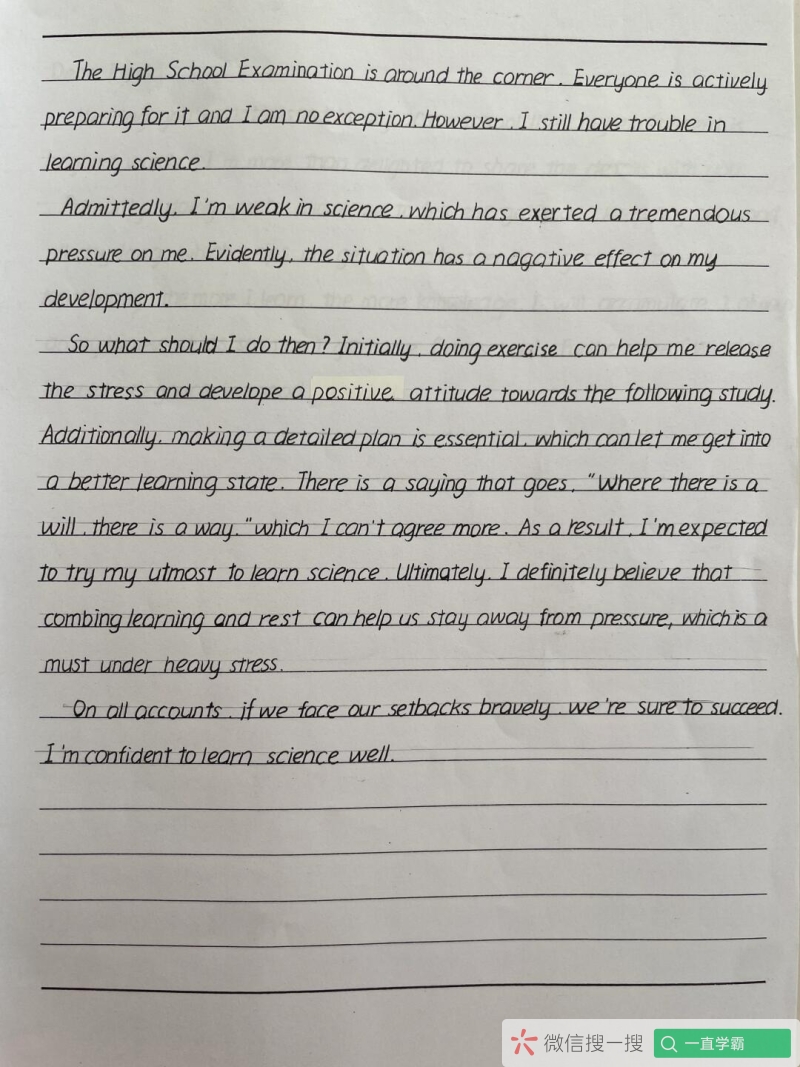 The High School Examination is around the corner. Everyone is actively
preparing for it and I am no exception. However, I still have trouble in
learning science.
Admittedly, I'm weak in science, which has exerted a tremendous
pressure on me. Evidently, the situation has a nagative effect on my
development.
So what should I do then? Initially, doing exercise can help me release
the stress and develope a positive attitude towards the following study.
Additionally, making a detailed plan is essential, which can let me get into
a better learning state. There is a saying that goes, "Where there is a
will, there is a way." which I can't agree more. As a result, I'm expected
to try my utmost to learn science. Ultimately, I definitely believe that
combing learning and rest can help us stay away from pressure, which is a
must under heavy stress.
On all accounts, if we face our setbacks bravely, we're sure to succeed.
I'm confident to learn science well.
微信搜一搜
一直学霸